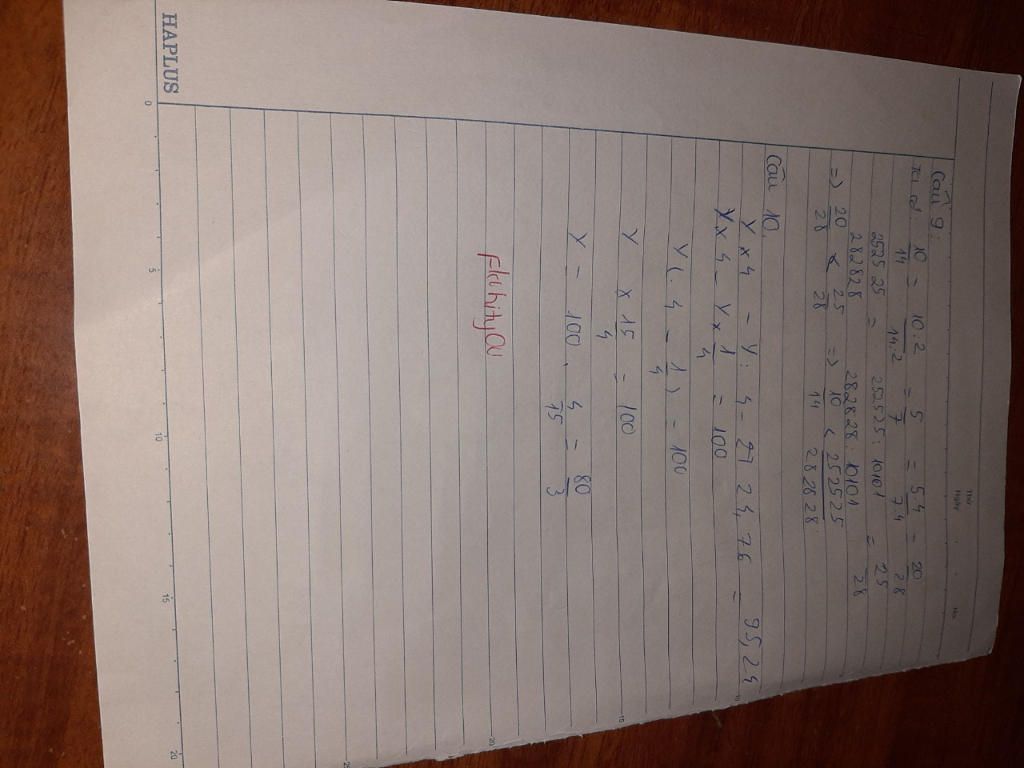 Câu 9:
Ta có: 10/14 = 10:2/14:2 = 5/7 = 5.4/7.4 = 20/28
252525/282828 = 252525:10101/282828:10101 = 25/28
=> 20/28 < 25/28 => 10/14 < 252525/282828
Câu 10.
Y x 4 - Y : 4 - 2724,76 = 95,24
Y x 4 - Y x 1/4 = 100
Y (4 - 1/4) = 100
Y x 15/4 = 100
Y = 100 . 4/15 = 80/3
HAPLUS
0
5
10
15
20